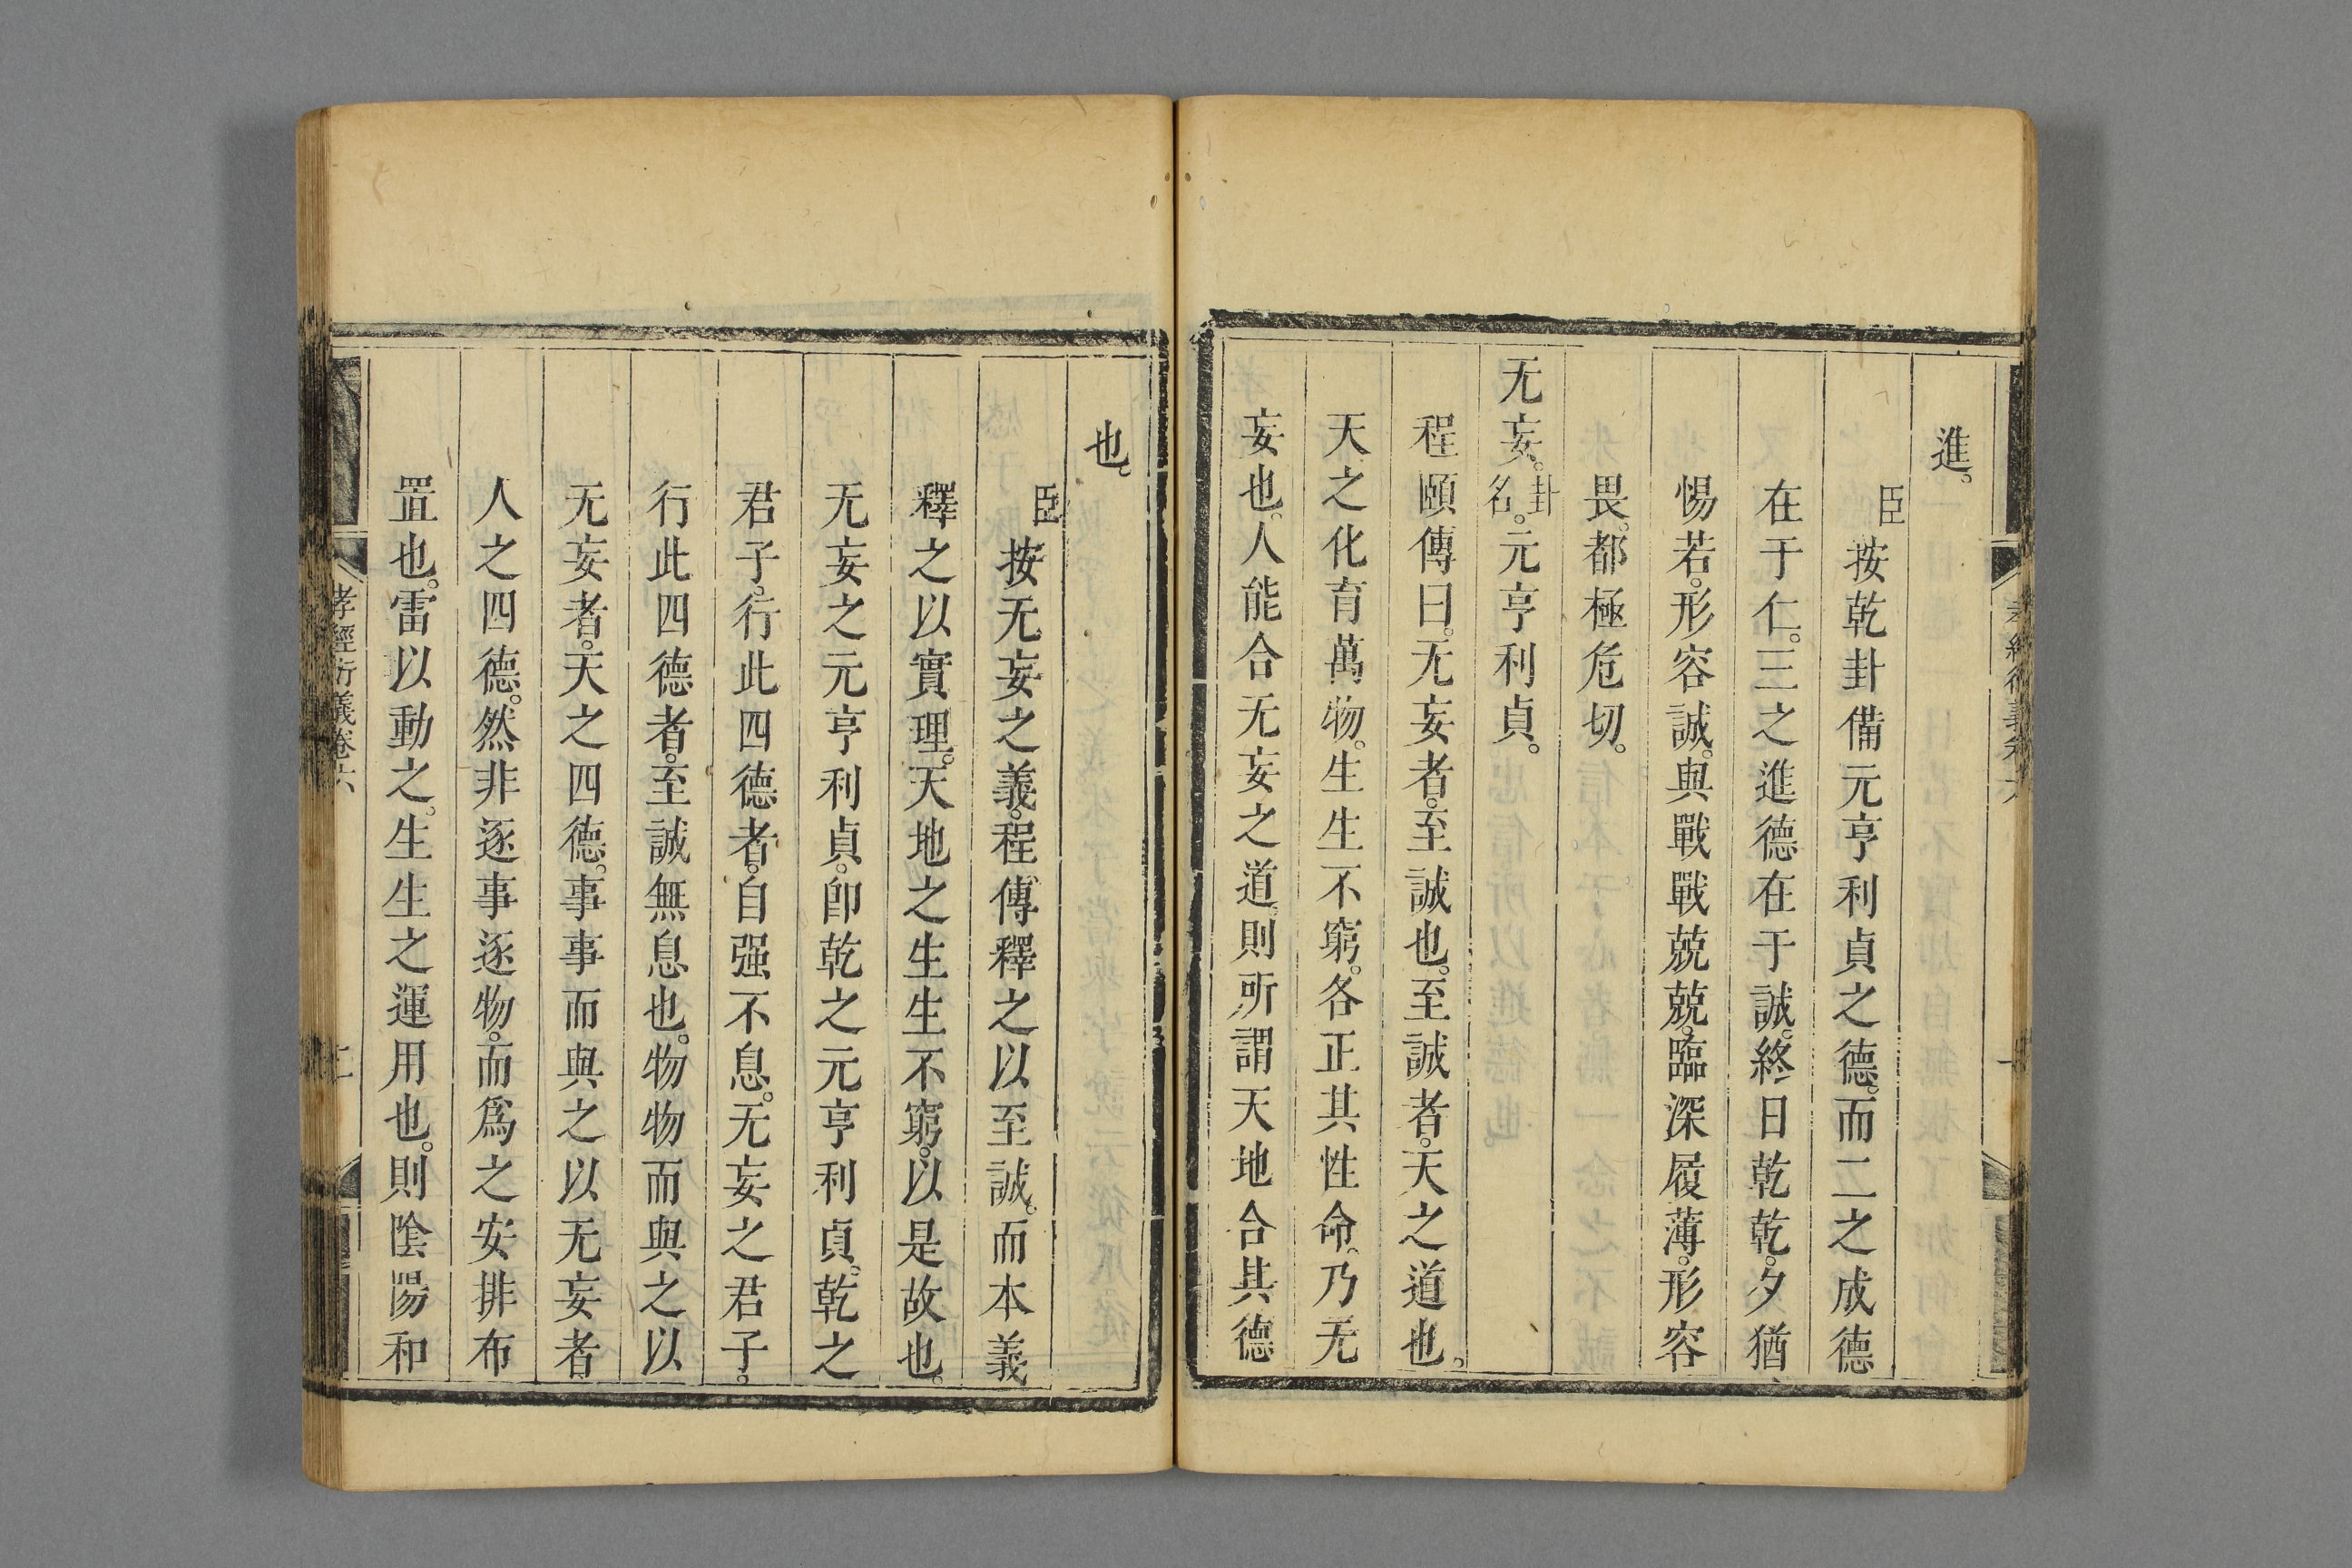 進。
臣按乾卦備元亨利貞之德。而二之成德
在于仁。三之進德在于誠。終日乾乾。夕猶
惕若。形容誠。與戰戰兢兢。臨深履薄。形容
畏。都極危切。
无妄。卦名。元亨利貞。
程頤傳曰。无妄者。至誠也。至誠者。天之道也。
天之化育萬物。生生不窮。各正其性命。乃无
妄也。人能合无妄之道。則所謂天地合其德
也。
臣按无妄之義。程傳釋之以至誠。而本義
釋之以實理。天地之生生不窮。以是故也。
无妄之元亨利貞。卽乾之元亨利貞。乾之
君子。行此四德者。自强不息。无妄之君子。
行此四德者。至誠無息也。物物而與之以
无妄者。天之四德。事事而與之以无妄者
人之四德。然非逐事逐物。而爲之安排布
置也。雷以動之。生生之運用也。則陰陽和
孝經衍義卷六
二